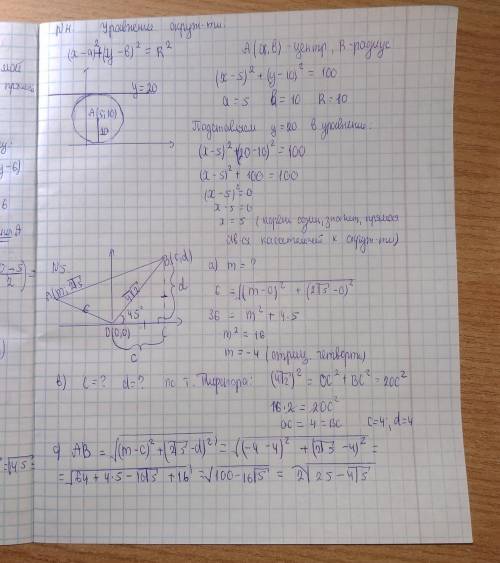 N4. Уравнение окруж-ти.
(x-a)²+(y-b)² = R²
A(a,b) - центр, R-радиус
(x-5)² + (y-10)² = 100
a = 5 b = 10 R = 10
y=20
A(5;10)
10
Подставляем y=20 в уравнение.
(x-5)²+(20-10)² = 100
(x-5)² + 100 = 100
(x-5)² = 0
x-5 = 0
x = 5 (корень один, значит, прямая
явл-ся касательной к окруж-ти)
N5
A(m; 2√5)
B(c,d)
6
4√2
45°
d
O(0,0)
c
a) m = ?
6 = √((m-0)² + (2√5-0)²)
36 = m² + 4·5
m² = 16
m = -4 (отриц. четверть)
в) c = ? d = ? по т. Пифагора: (4√2)² = OC² + BC² = 2OC²
16·2 = 2OC²
OC = 4 = BC c=4, d=4
c) AB = √((m-c)² + (2√5-d)²) = √((-4-4)² + (2√5-4)²) =
= √(64 + 4·5 - 16√5 + 16) = √(100-16√5) = 2√(25-4√5)